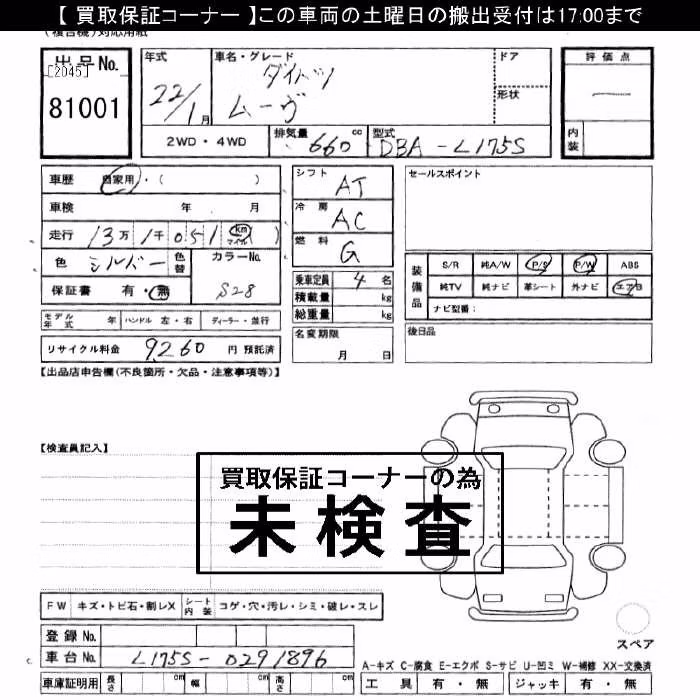 【 買取保証コーナー 】この車両の土曜日の搬出受付は17:00まで
(複合機)対応用紙
出品No.
[2045]
81001
年式
22/1月
車名・グレード
ダイハツ
ムーヴ
ドア
形状
評価点
一
内装
2WD・4WD
排気量
660 cc
型式
DBA-L175S
車歴 自家用・( )
車検 年 月
走行 13万 1千 051 km マイル ( )
色 シルバー 色替 カラーNo.
S28
保証書 有・無
モデル年式 年 ハンドル 左・右 ディーラー・並行
リサイクル料金 9260 円 預託済
シフト AT
冷房 AC
燃料 G
乗車定員 4 名
積載量 kg
総重量 kg
名変期限
月 日
セールスポイント
装備品
S/R 純A/W P/S P/W ABS
純TV 純ナビ 革シート 外ナビ エアB
ナビ型番:
後日品
【出品店申告欄(不良箇所・欠品・注意事項等)】
【検査員記入】
買取保証コーナーの為
未検査
FW キズ・トビ石・割レX シート内装 コゲ・穴・汚レ・シミ・破レ・スレ
登録No.
車台No. L175S-0291896
車庫証明用 長さ cm 幅 cm 高さ cm
スペア
A-キズ C-腐食 E-エクボ S-サビ U-凹ミ W-補修 XX-交換済
工具 有・無 ジャッキ 有・無